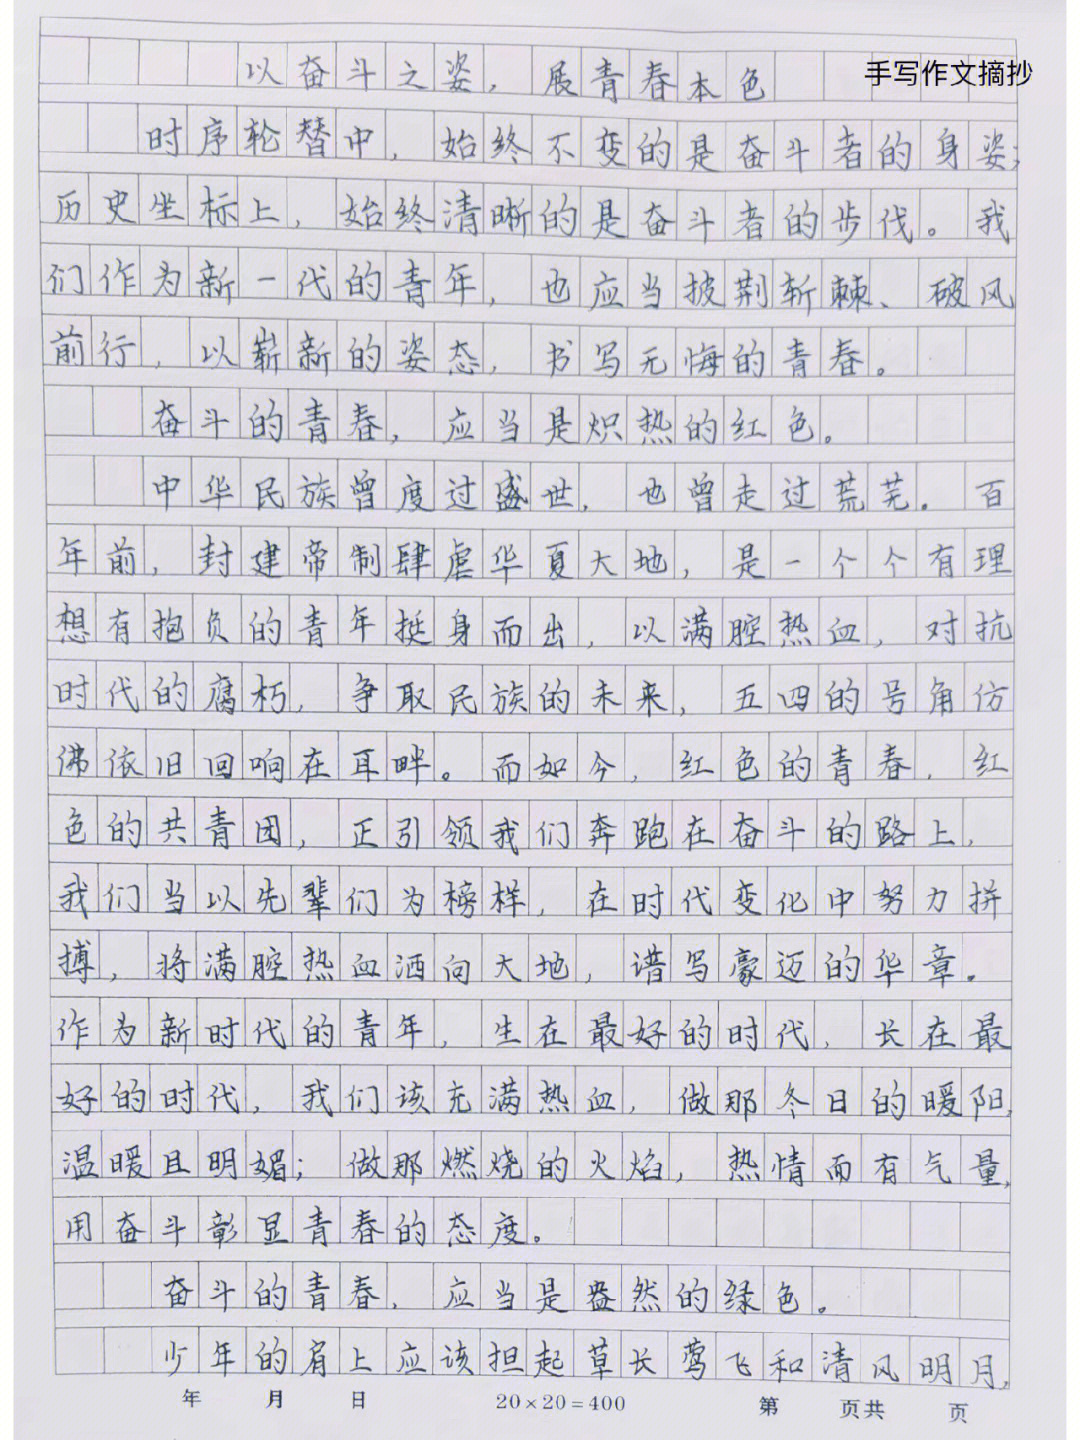 手写作文摘抄
以奋斗之姿，展青春本色
时序轮替中，始终不变的是奋斗者的身姿；
历史坐标上，始终清晰的是奋斗者的步伐。我
们作为新一代的青年，也应当披荆斩棘、破风
前行，以崭新的姿态，书写无悔的青春。
奋斗的青春，应当是炽热的红色。
中华民族曾度过盛世，也曾走过荒芜。百
年前，封建帝制肆虐华夏大地，是一个个有理
想有抱负的青年挺身而出，以满腔热血，对抗
时代的腐朽，争取民族的未来，五四的号角仿
佛依旧回响在耳畔。而如今，红色的青春，红
色的共青团，正引领我们奔跑在奋斗的路上，
我们当以先辈们为榜样，在时代变化中努力拼
搏，将满腔热血洒向大地，谱写豪迈的华章。
作为新时代的青年，生在最好的时代，长在最
好的时代，我们该充满热血，做那冬日的暖阳，
温暖且明媚；做那燃烧的火焰，热情而有气量，
用奋斗彰显青春的态度。
奋斗的青春，应当是盎然的绿色。
少年的肩上应该担起草长莺飞和清风明月，
年 月 日 20×20=400 第 页共 页